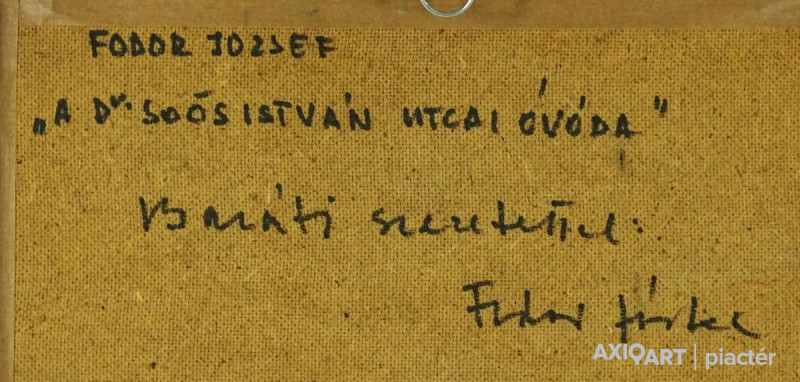 FODOR JOZSEF
„A Dr. SOÓS ISTVÁN UTCAI ÓVÓDA"
Baráti szeretettel:
Fodor József
AXIOART | piactér